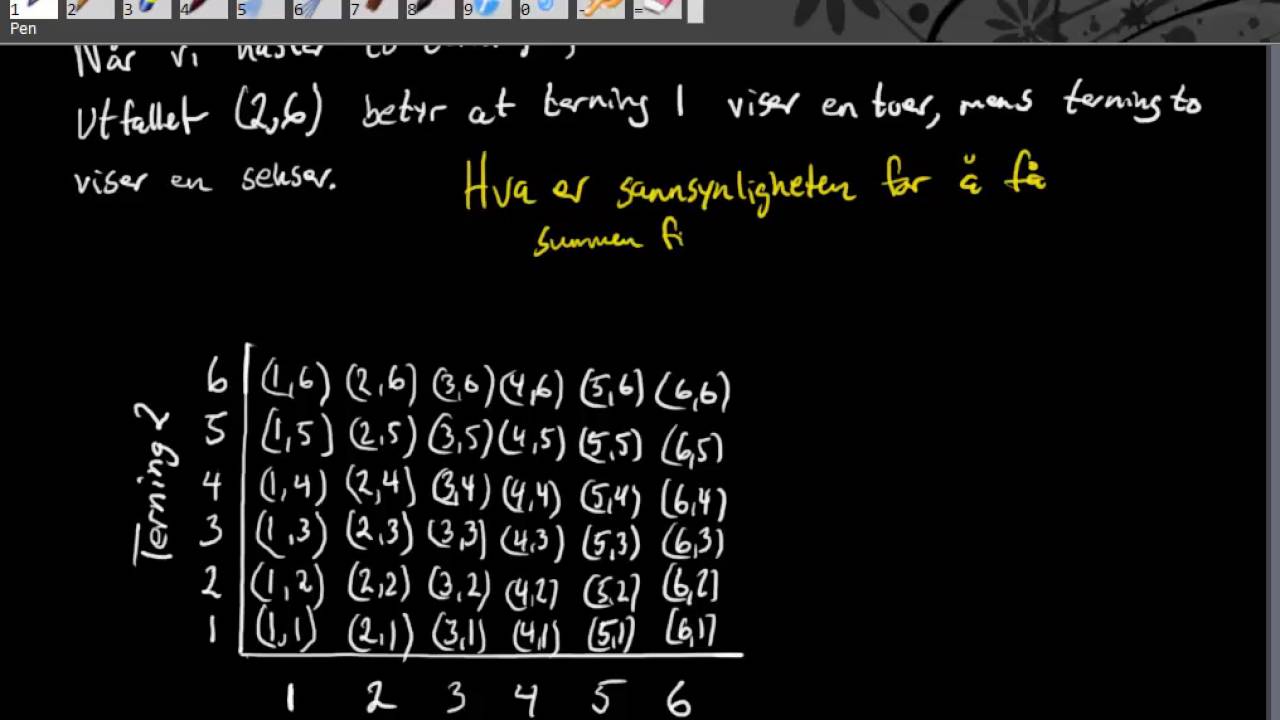 1 2 3 4 5 6 7 8 9 0 - =
Pen
Når vi
Utfallet (2,6) betyr at terning 1 viser en toer, mens terning to
viser en sekser.
Hva er sannsynligheten for å få
summen fi
6 (1,6) (2,6) (3,6) (4,6) (5,6) (6,6)
5 (1,5) (2,5) (3,5) (4,5) (5,5) (6,5)
4 (1,4) (2,4) (3,4) (4,4) (5,4) (6,4)
3 (1,3) (2,3) (3,3) (4,3) (5,3) (6,3)
2 (1,2) (2,2) (3,2) (4,2) (5,2) (6,2)
1 (1,1) (2,1) (3,1) (4,1) (5,1) (6,1)
Terning 2
1 2 3 4 5 6